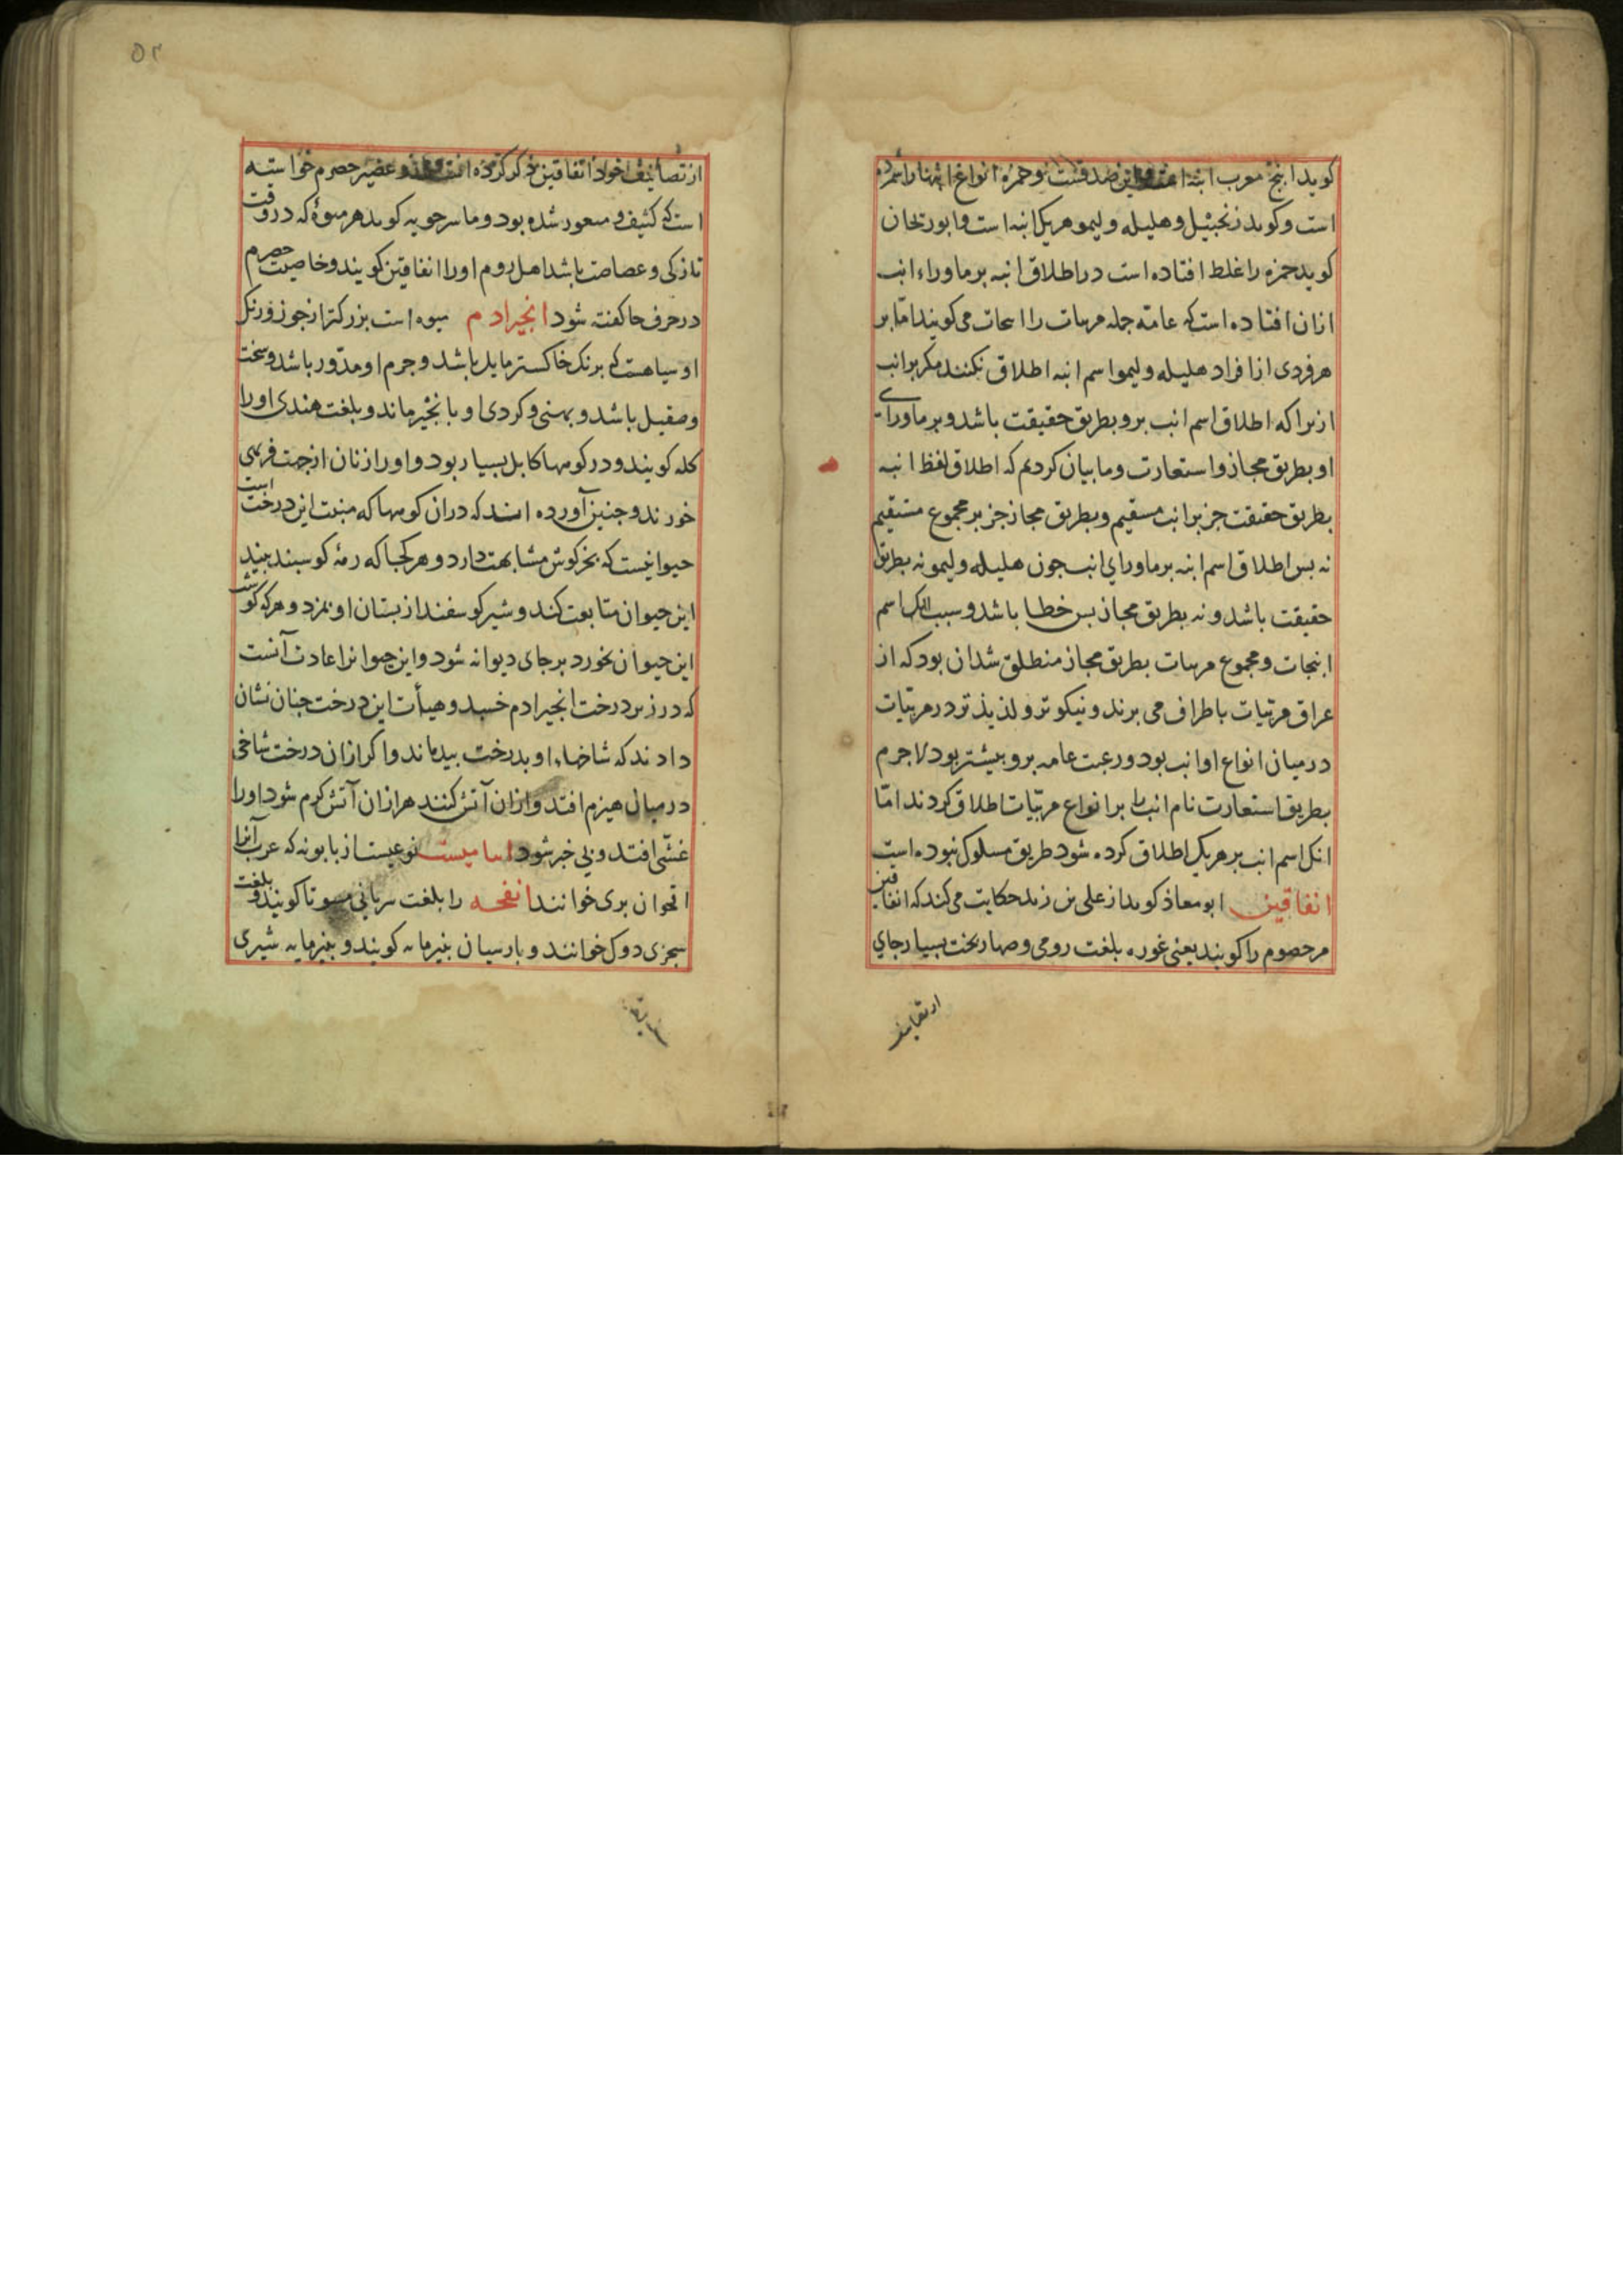 کوید انبج معرب انبه است و حمزه انواع انبها را شمرده
است و کوید زنجبیل و هلیله و لیمو هریک انبه است و ابوریحان
کوید حمزه را غلط افتاده است در اطلاق انبه بر ماوراء انب
ازان افتاده است که عامه جمله مربیات را انبجات می کویند اما بر
هر فردی از افراد هلیله و لیمو اسم انبه اطلاق نکنند مکر بر انب
ازیرا که اطلاق اسم انب برو بطریق حقیقت باشد و بر ماورای
او بطریق مجاز و استعارت و ما بیان کردیم که اطلاق لفظ انبه
بطریق حقیقت جز بر انب مستقیم و بطریق مجاز جز بر مجموع مستقیم
نه بس اطلاق اسم انبه بر ماورای انب جون هلیله و لیمو نه بطریق
حقیقت باشد و نه بطریق مجاز بس خطا باشد و سبب انک اسم
انبجات و مجموع مربیات بطریق مجاز منطلق شد ان بود که از
عراق مربیات باطراف می برند و نیکوتر و لذیذتر در مربیات
در میان انواع او انب بود و رغبت عامه برو بیشتر بود لاجرم
بطریق استعارت نام انب را بر انواع مربیات اطلاق کردند اما
انک اسم انب بر هریک اطلاق کرده شود طریق مسلوک نبوده است
انفاقین ابو معاذ کوید از علی بن زید حکایت می کند که انفاقین
مر حصرم را کویند یعنی غوره بلغت رومی و صهاربخت بسیار جای
از تصانیف
۵۲
از تصانیف خود انفاقین ذکر کرده است و عصیر حصرم خواسته
است که کثیف و بود و ماسرجویه کوید هر میوهٔ که در وقت
تازکی و عصاصت باشد اهل روم او را انفاقین کویند و خاصیت حصرم
در حرف حا کفته شود انجیر ادم میوه است بزرکتر از جوز و رنک
او سیاهست که برنک خاکستر مایل باشد و جرم او مدور باشد و سخت
و صقیل باشد و بهنی و کردی او بانجیر ماند و بلغت هندی او را
کله کویند و در کوهها کابل بسیار بود و او را زنان از جهت فربهی
خورند و جنین آورده اند که دران کوهها که منبت این درخت است
حیوانیست که بخرکوش مشابهت دارد و هر کجا که رمهٔ کوسبند بیند
این حیوان متابعت کند و شیر کوسفند از بستان او بمزد و هرکه کوشت
این حیوان بخورد بر جای دیوانه شود و این حیوانرا عادت آنست
که در زیر درخت انجیر ادم خسبد و هیأت این درخت جنان نشان
دادند که شاخهاء او بدرخت بید ماند و اکر ازان درخت شاخی
در میان هیزم افتد و ازان آتش کنند هر ازان آتش کرم شود او را
غشی افتد و بی خبر شود نوعیست از بابونه که عرب آنرا
اقحوان بری خوانند انفحه را بلغت سریانی کویند و بلغت
سجزی دوک خوانند و بارسیان بنیرمایه کویند و بنیرمایه شیری